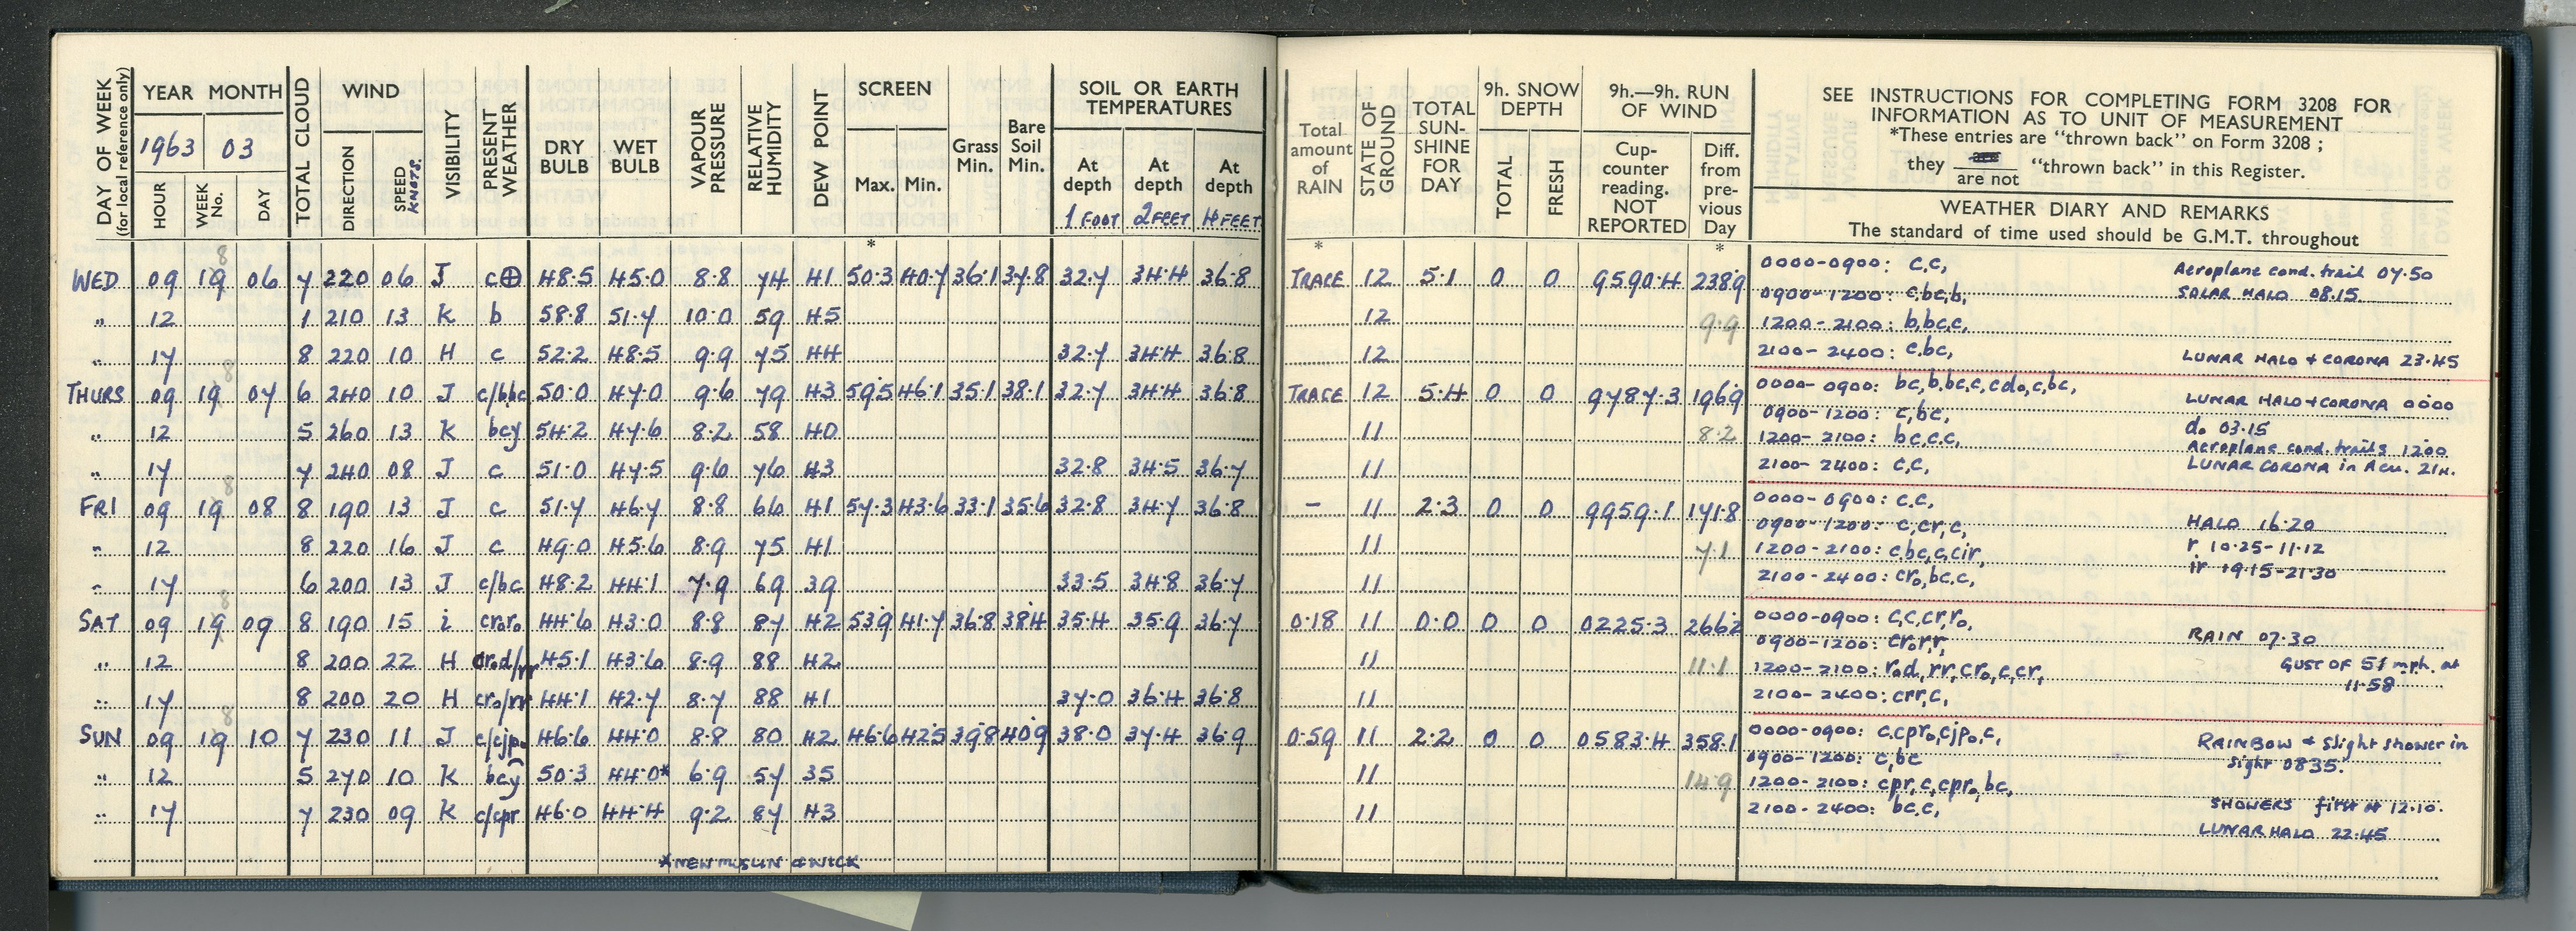 DAY OF WEEK (for local reference only)
YEAR MONTH
1963 03
HOUR WEEK No. DAY
TOTAL CLOUD
WIND
DIRECTION SPEED KNOTS.
VISIBILITY
PRESENT WEATHER
DRY BULB
WET BULB
VAPOUR PRESSURE
RELATIVE HUMIDITY
DEW POINT
SCREEN
Max. Min.
*
Grass Min.
Bare Soil Min.
SOIL OR EARTH TEMPERATURES
At depth At depth At depth
1 FOOT 2 FEET 4 FEET
WED 09 19 8 06 7 220 06 J c⊕ 48.5 45.0 8.8 74 41 50.3 40.7 36.1 37.8 32.7 34.4 36.8
" 12 1 210 13 K b 58.8 51.7 10.0 59 45
" 17 8 220 10 H c 52.2 48.5 9.9 75 44 32.7 34.4 36.8
THURS 09 19 8 07 6 240 10 J c/bbc 50.0 47.0 9.6 79 43 59.5 46.1 35.1 38.1 32.7 34.4 36.8
" 12 5 260 13 K bcy 54.2 47.6 8.2 58 40
" 17 7 240 08 J c 51.0 47.5 9.6 76 43 32.8 34.5 36.7
FRI 09 19 8 08 8 190 13 J c 51.7 46.7 8.8 66 41 57.3 43.6 33.1 35.6 32.8 34.7 36.8
" 12 8 220 16 J c 49.0 45.6 8.9 75 41
" 17 6 200 13 J c/bc 48.2 44.1 7.9 69 39 33.5 34.8 36.7
SAT 09 19 8 09 8 190 15 i cr₀r₀ 44.6 43.0 8.8 87 42 53.9 41.7 36.8 38.4 35.4 35.9 36.7
" 12 8 200 22 H cr₀d/rr 45.1 43.6 8.9 88 42
" 17 8 200 20 H cr₀/rr 44.1 42.7 8.7 88 41 37.0 36.4 36.8
SUN 09 19 8 10 7 230 11 J c/cjp₀ 46.6 44.0 8.8 80 42 46.6 42.5 39.8 40.9 38.0 37.4 36.9
" 12 5 270 10 K bcy 50.3 44.0* 6.9 57 35
" 17 7 230 09 K c/cpr 46.0 44.4 9.2 87 43
*NEW MUSLIN & WICK
Total amount of RAIN
*
STATE OF GROUND
TOTAL SUN-SHINE FOR DAY
9h. SNOW DEPTH
TOTAL FRESH
9h.—9h. RUN OF WIND
Cup-counter reading. NOT REPORTED
Diff. from pre-vious Day
*
SEE INSTRUCTIONS FOR COMPLETING FORM 3208 FOR
INFORMATION AS TO UNIT OF MEASUREMENT
*These entries are "thrown back" on Form 3208 ;
they are / are not "thrown back" in this Register.
WEATHER DIARY AND REMARKS
The standard of time used should be G.M.T. throughout
TRACE 12 5.1 0 0 9590.4 238.9 0000-0900: c,c, Aeroplane cond. trail 07.50
0900-1200: c,bc,b, SOLAR HALO 08.15
12 9.9 1200-2100: b,bc,c,
12 2100-2400: c,bc, LUNAR HALO + CORONA 23.45
TRACE 12 5.4 0 0 9787.3 196.9 0000-0900: bc,b,bc,c,cd₀,c,bc, LUNAR HALO + CORONA 0000
0900-1200: c,bc, d₀ 03.15
11 8.2 1200-2100: bc,c,c, Aeroplane cond. trails 1200
11 2100-2400: c,c, LUNAR CORONA in Acu. 21H.
- 11 2.3 0 0 9959.1 171.8 0000-0900: c,c,
0900-1200: c,cr,c, HALO 16.20
11 7.1 1200-2100: c,bc,c,cir, r 10.25-11.12
11 2100-2400: cr₀,bc,c, ir 19.15-21.30
0.18 11 0.0 0 0 0225.3 266.2 0000-0900: c,c,cr,r₀,
0900-1200: cr₀r,r, RAIN 07.30
11 11.1 1200-2100: r₀d,rr,cr₀,c,cr, GUST OF 51 mph. at
11 2100-2400: crr,c, 11.58
0.59 11 2.2 0 0 0583.4 358.1 0000-0900: c,cpr₀,cjp₀,c, RAINBOW & Slight shower in
0900-1200: c,bc sight 0835.
11 14.9 1200-2100: cpr,c,cpr₀,bc,
11 2100-2400: bc,c, SHOWERS first at 12.10.
LUNAR HALO 22.45